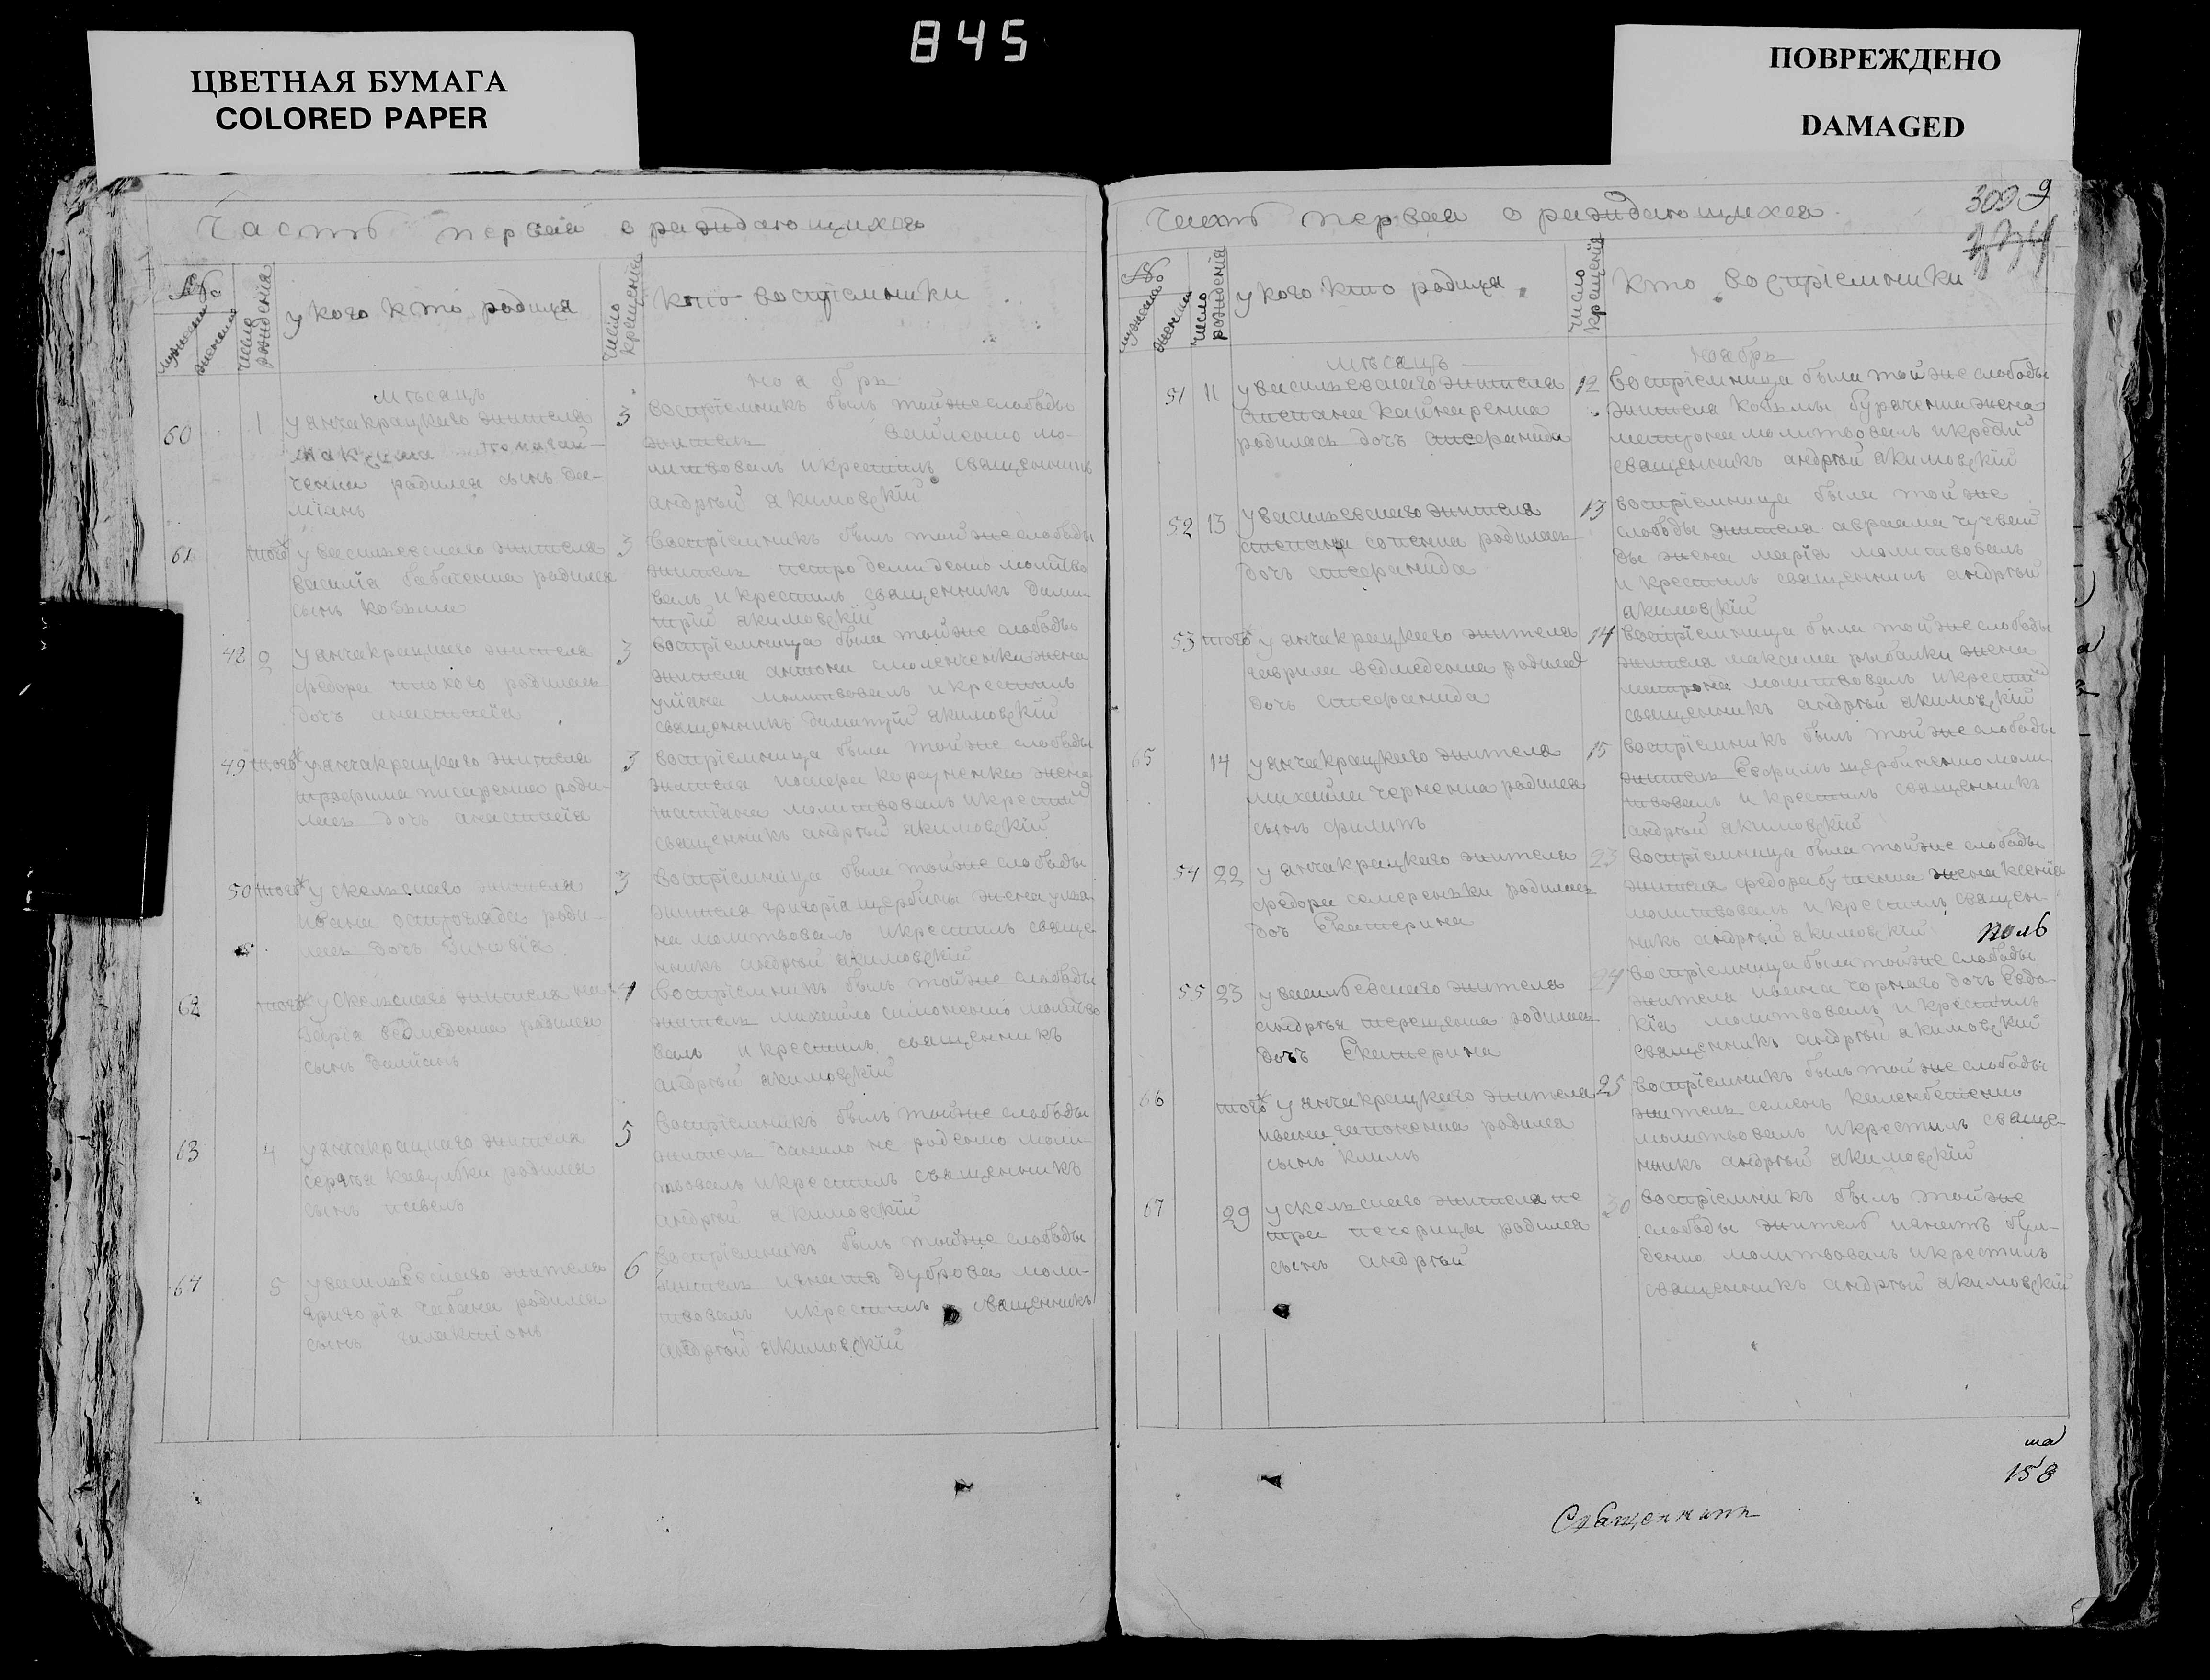 845
ЦВЕТНАЯ БУМАГА
COLORED PAPER
ПОВРЕЖДЕНО
DAMAGED
Часть первая о раждающихся
№
мужеска
женска
число рожденія
у кого кто родился
число крещенія
кто воспріемники
мѣсяцъ
ноябрь
60 1 у янчакрацкаго жителя
максима
ченка родился сынъ Да-
міанъ
3 воспріемникъ былъ тойже слободы
житель мо-
литвовалъ и крестилъ священникъ
андрѣй якимовскій
61 тогож у васильевскаго жителя
василія бабаченка родился
сынъ козьма
3 воспріемникъ былъ тойже слободы
житель петро демиденко молитво
валъ и крестилъ священникъ дими-
трій якимовскій
48 2 у янчакрацкаго жителя
федора плохого родилась
дочь анастасія
3 воспріемница была тойже слободы
жителя антона смоленченка жена
уліяна молитвовалъ и крестилъ
священникъ димитрій якимовскій
49 тогож у янчакрацкаго жителя
трофима писаренка роди-
лась дочь анастасія
3 воспріемница была тойже слободы
жителя жена
татіяна молитвовалъ и крестил
священникъ андрѣй якимовскій
50 тогож у скельскаго жителя
ивана роди-
лась дочь Зиновія
3 воспріемница была тойже слободы
жителя григорія щербины жена улья
на молитвовалъ и крестилъ свяще
нникъ андрѣй якимовскій
62 тогож у скельскаго жителя на
зарія ведмеденка родился
сынъ Даміанъ
4 воспріемникъ былъ тойже слободы
житель михайло симоненко молитво
валъ и крестилъ священникъ
андрѣй якимовскій
63 4 у янчакрацкаго жителя
сергѣя кавунки родился
сынъ павелъ
5 воспріемникъ былъ тойже слободы
житель данило моли-
твовалъ и крестилъ священникъ
андрѣй якимовскій
64 5 у васильевскаго жителя
григорія чабана родился
сынъ галактіонъ
6 воспріемникъ былъ тойже слободы
житель игнатъ дуброва моли-
твовалъ и крестилъ священникъ
андрѣй якимовскій
Часть первая о раждающихся
309 9
№
мужеска
женска
число рожденія
у кого кто родился
число крещенія
кто воспріемники
мѣсяцъ
ноябрь
51 11 у васильевскаго жителя
степана кайнаренка
родилась дочь стефанида
12 воспріемница была тойже слободы
жителя козьмы бураченка жена
матрона молитвовалъ и крестил
священникъ андрѣй якимовскій
52 13 у васильевскаго жителя
степана сопенка родилась
дочь стефанида
13 воспріемница была тойже
слободы жителя авраама
жена марія молитвовалъ
и крестилъ священникъ андрѣй
якимовскій
53 тогож у янчакрацкаго жителя
гаврила ведмеденка родилас
дочь стефанида
14 воспріемница была тойже слободы
жителя максима рыбалки жена
матрона молитвовалъ и крестил
священникъ андрѣй якимовскій
65 14 у янчакрацкаго жителя
михайла черненка родился
сынъ филипъ
15 воспріемникъ былъ тойже слободы
житель Ефримъ щербиненко моли
твовалъ и крестилъ священникъ
андрѣй якимовскій
54 22 у янчакрацкаго жителя
федора семереньки родилась
доч Екатерина
23 воспріемница была тойже слободы
жителя федора жена ксенія
молитвовалъ и крестилъ священ-
никъ андрѣй якимовскій
55 23 у васильевскаго жителя
андрѣя терещенка родилась
дочь Екатерина
24 воспріемница была тойже слободы
жителя ивана чорнаго дочь Евдо
кія молитвовалъ и крестилъ
священникъ андрѣй якимовскій
66 тогож у янчакрацкаго жителя
ивана гапоненка родился
сынъ климъ
25 воспріемникъ былъ тойже слободы
житель семенъ
молитвовалъ и крестилъ свяще-
нникъ андрѣй якимовскій
67 29 у скельскаго жителя пе
тра печерицы родился
сынъ андрѣй
30 воспріемникъ былъ тойже
слободы житель игнатъ
молитвовалъ и крестилъ
священникъ андрѣй якимовскій
158
Священникъ